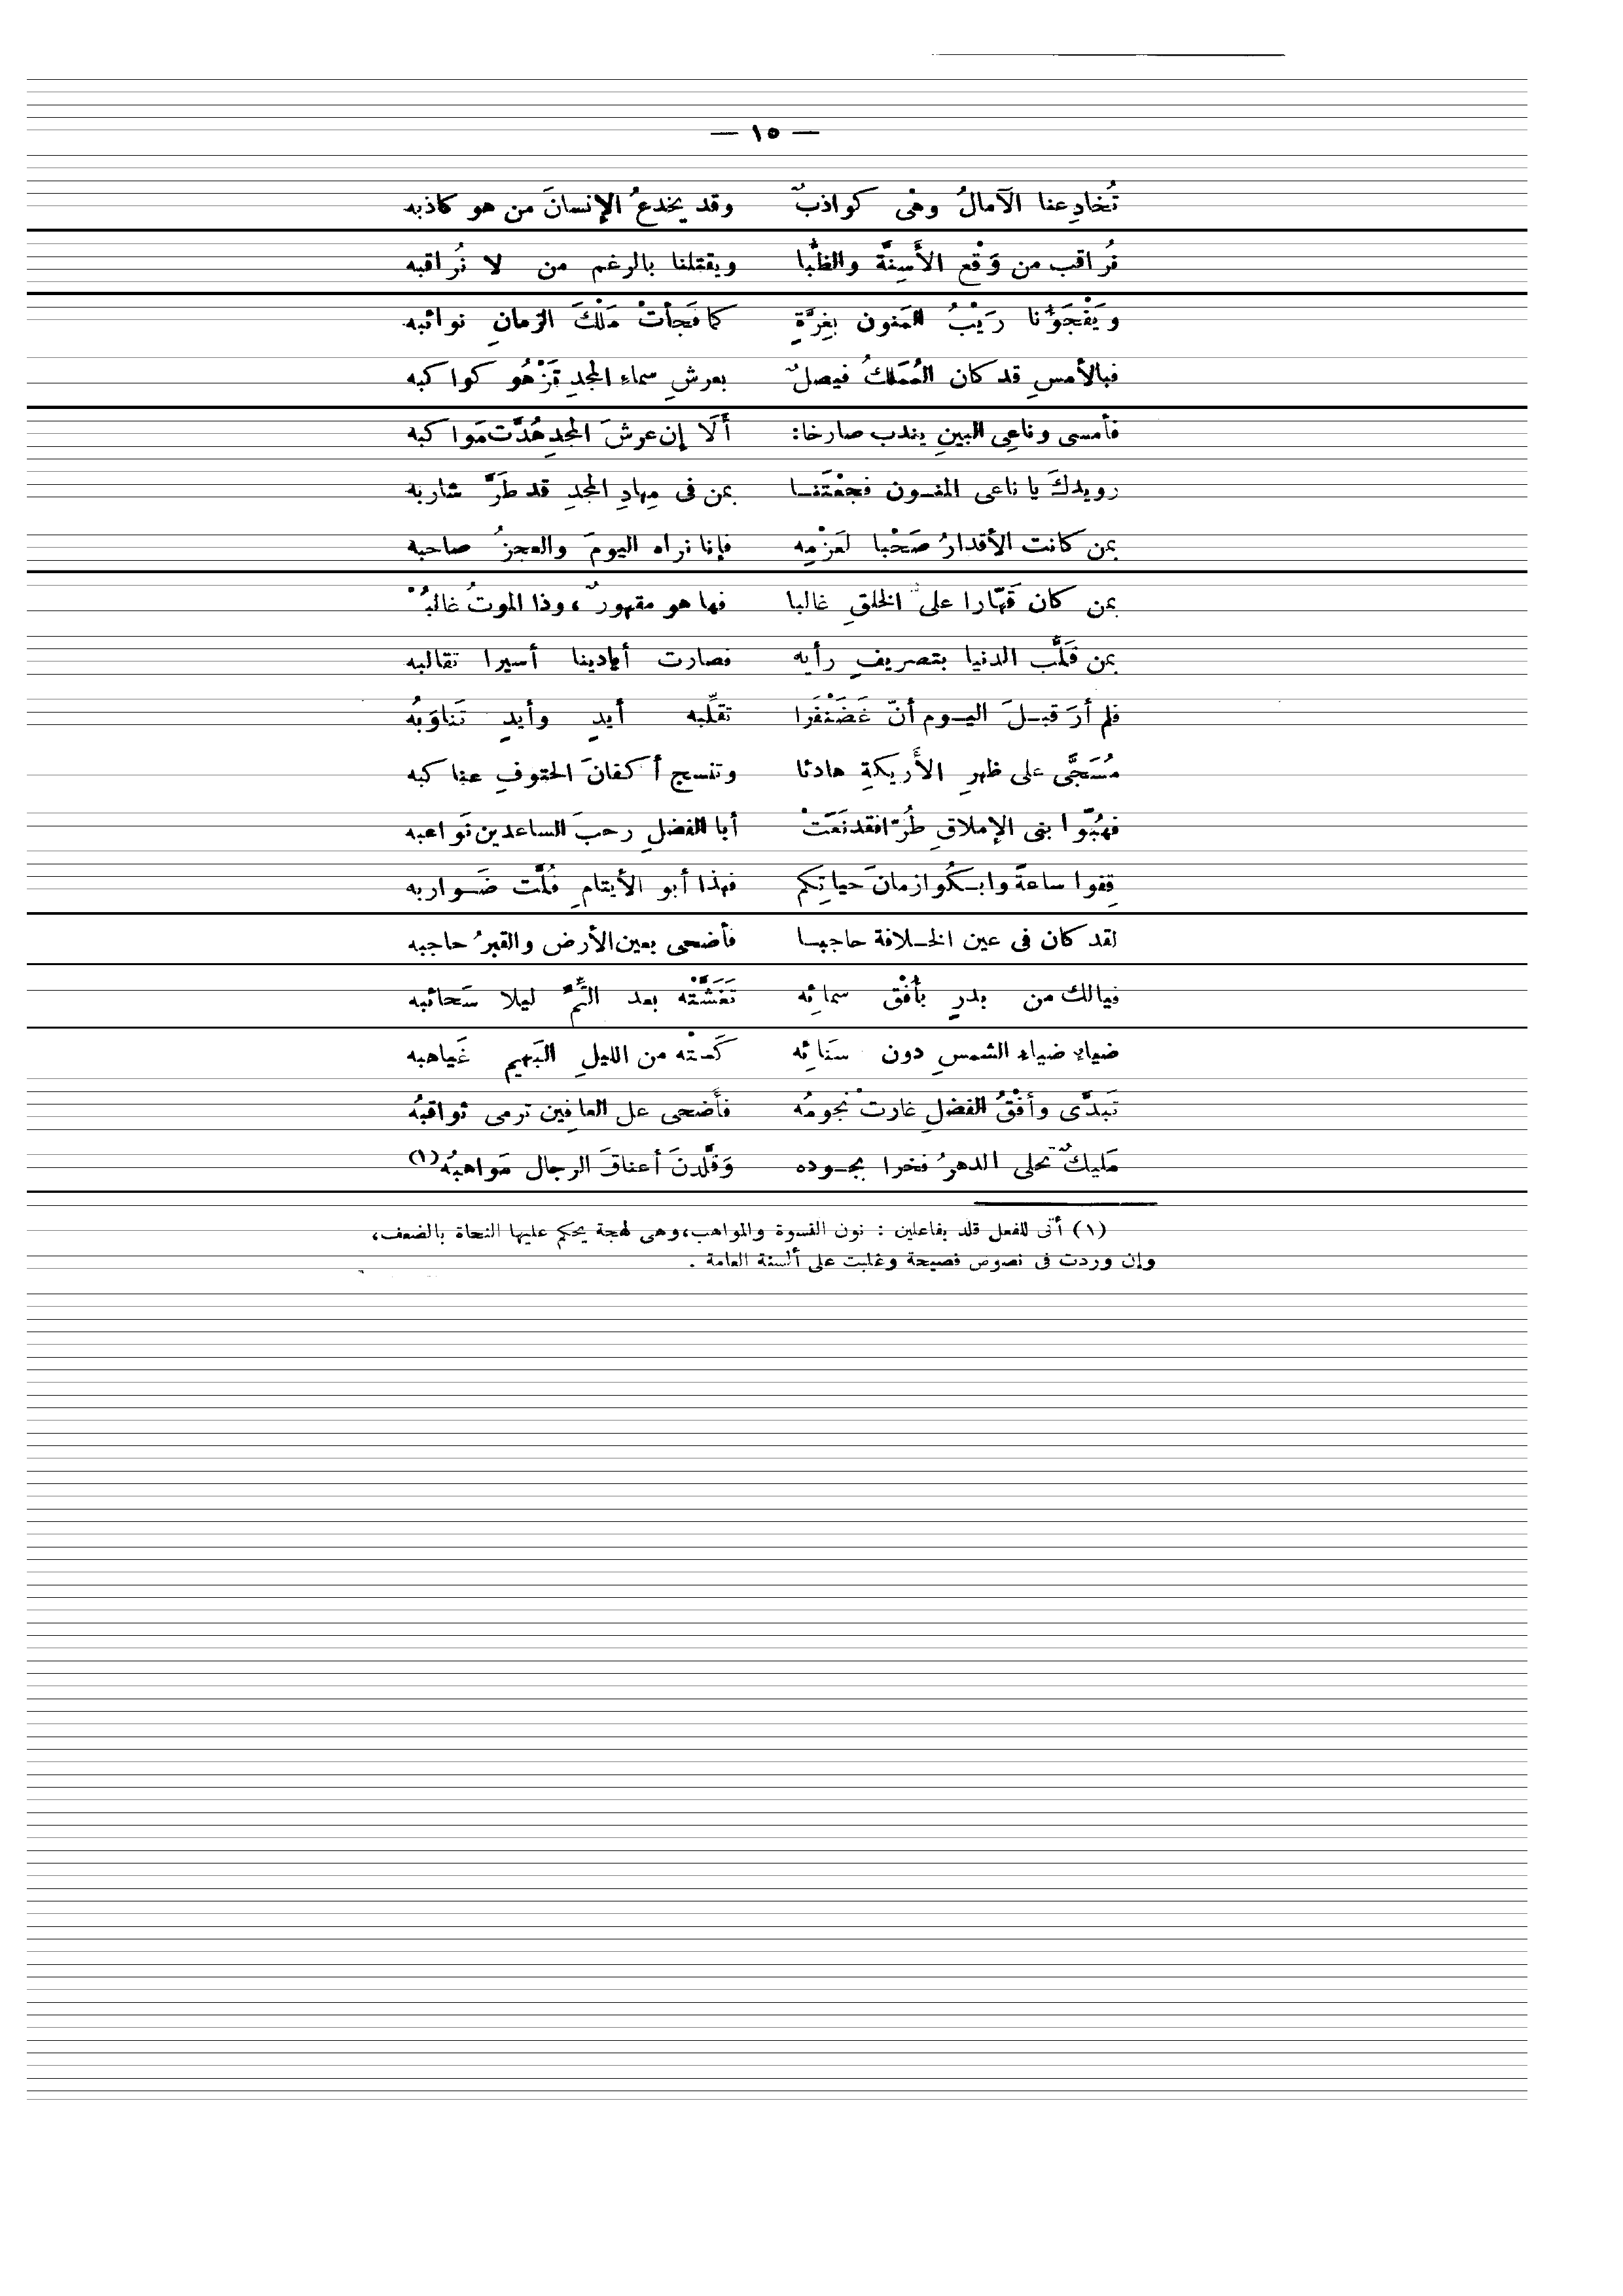 — ١٥ —
تُخادِعنا الآمالُ وهْى كواذبٌ وقد يخدعُ الإنسانَ من هو كاذبه
نُراقب من وَقْع الأَسِنَّة والظُّبا ويقتلنا بالرغم من لا نُراقبه
ويَفْجَؤُنا رَيْبُ المَنون بغِرَّةٍ كما فَجأتْ مَلْكَ الزمانِ نوائبه
فبالأمسِ قد كان المُمَلكُ فيصلٌ بعرشِ سماءِ المجدِ تَزْهُو كواكبه
فأمسى وناعِى البينِ يندب صارخا: أَلَا إن عرشَ المجدِ هُدَّت مَواكبه
رويدكَ يا ناعى المنـون فجعْتَنـا بمن فى مِهادِ المجدِ قد طَرَّ شاربه
بمن كانت الأقدارُ صَحْبا لعَزْمِه فإنا نراه اليومَ والعجزُ صاحبه
بمن كان قَهّارا على الخلقِ غالبا فها هو مقهورٌ، وذا الموتُ غالبُهْ
بمن قَلَّب الدنيا بتصريفِ رأيه فصارت أيادينا أسيرا تقالبه
فلم أرَ قبـلَ اليـوم أنّ غَضَنْفَرا تقلِّبه أيدٍ وأيدٍ تَناوَبُه
مُسَجًّى على ظهرِ الأَريكةِ هادئا وتنسج أكفانَ الحتوفِ عناكبه
فهُبّوا بنى الإملاقِ طُرًّا فقد نَعَتْ أبا الفضلِ رحبَ الساعدين نَواعبه
قِفوا ساعةً وابـكُوا زمانَ حياتِكم فهذا أبو الأيتامِ فُلَّت ضَـواربه
لقد كان فى عين الخـلافة حاجبـا فأضحى بعين الأرض والقبرُ حاجبه
فيالك من بدرٍ بأُفْق سمائِه تَغَشَّتْه بعد التِّمِّ ليلا سَحائبه
ضياء ضياء الشمسِ دون سَنائِه كَستْه من الليلِ البَهيم غَياهبه
تَبدَّى وأفْقُ الفضلِ غارتْ نجومُه فأَضحى عل العافِين ترمى ثواقبُه
مَليكٌ تحلى الدهرُ فخرا بجـوده وَقلَّدنَ أعناقَ الرجال مَواهبُه(١)
(١) أتى للفعل قلد بفاعلين : نون النسوة والمواهب، وهى لهجة يحكم عليها النحاة بالضعف،
وإن وردت فى نصوص فصيحة وغلبت على ألسنة العامة .